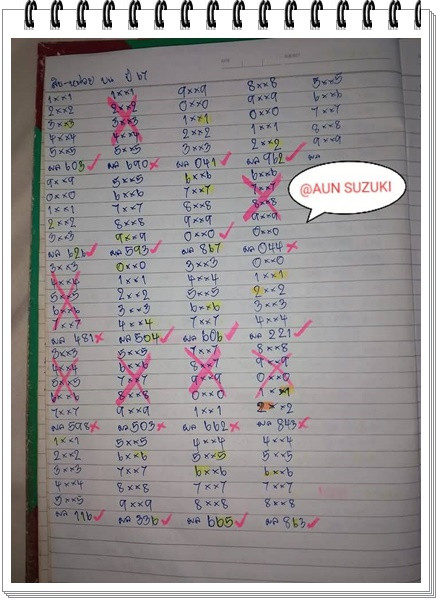 สิบ-หน่วย บน ปี 67
1××1 1××1 9××9 8××8 5××5
2××2 2××2 0××0 9××9 6××6
3××3 3××3 1××1 0××0 7××7
4××4 4××4 2××2 1××1 8××8
5××5 5××5 3××3 2××2 9××9
ผล 603✓ ผล 690× ผล 041✓ ผล 962✓ ผล
@AUN SUZUKI
9××9 5××5 6××6 6××6
0××0 6××6 7××7 7××7
1××1 7××7 8××8 8××8
2××2 8××8 9××9 9××9
3××3 9××9 0××0 0××0
ผล 626✓ ผล 593✓ ผล 867 ผล 044×
3××3 0××0 3××3 0××0
4××4 1××1 4××4 1××1
5××5 2××2 5××5 2××2
6××6 3××3 6××6 3××3
7××7 4××4 7××7 4××4
ผล 481× ผล 504✓ ผล 606✓ ผล 221✓
3××3 5××5 7××7 8××8
4××4 6××6 8××8 9××9
5××5 7××7 9××9 0××0
6××6 8××8 0××0 1××1
7××7 9××9 1××1 2××2
ผล 598× ผล 503× ผล 662× ผล 843×
1××1 5××5 4××4 4××4
2××2 6××6 5××5 5××5
3××3 7××7 6××6 6××6
4××4 8××8 7××7 7××7
5××5 9××9 8××8 8××8
ผล 116✓ ผล 336✓ ผล 665✓ ผล 863✓